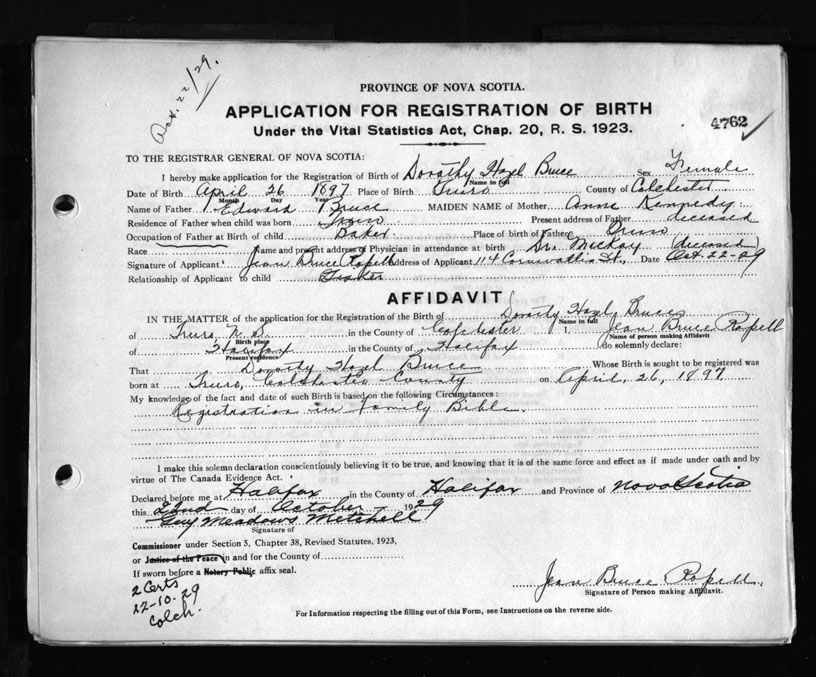 Oct. 22/29.
PROVINCE OF NOVA SCOTIA.
APPLICATION FOR REGISTRATION OF BIRTH
Under the Vital Statistics Act, Chap. 20, R. S. 1923.
4762
TO THE REGISTRAR GENERAL OF NOVA SCOTIA:
I hereby make application for the Registration of Birth of Dorothy Hazel Bruce Sex Female
Name in full
Date of Birth April 26 1897 Place of Birth Truro County of Colchester
Month Day Year
Name of Father Edward Bruce MAIDEN NAME of Mother Annie Kennedy
Residence of Father when child was born Truro Present address of Father deceased
Occupation of Father at Birth of child Baker Place of birth of Father Truro
Race Name and present address of Physician in attendance at birth Dr. McKay (deceased)
Signature of Applicant Jean Bruce Ropell Address of Applicant 114 Cornwallis St., Date Oct. 22-29
Relationship of Applicant to child
AFFIDAVIT
IN THE MATTER of the application for the Registration of the Birth of Dorothy Hazel Bruce
Name in full
of Truro, N.S. in the County of Colchester I, Jean Bruce Ropell
Birth place Name of person making Affidavit
of Halifax in the County of Halifax do solemnly declare:
Present residence
That Dorothy Hazel Bruce Whose Birth is sought to be registered was
born at Truro, Colchester County on April, 26, 1897
My knowledge of the fact and date of such Birth is based on the following Circumstances:
Registration in Family Bible.
I make this solemn declaration conscientiously believing it to be true, and knowing that it is of the same force and effect as if made under oath and by
virtue of The Canada Evidence Act.
Declared before me at Halifax in the County of Halifax and Province of Nova Scotia
this 22nd day of October 1929
Guy Meadows Mitchell
Signature of
Commissioner under Section 5, Chapter 38, Revised Statutes, 1923,
or Justice of the Peace in and for the County of
If sworn before a Notary Public affix seal.
2 Certs
22-10-29
Colch.
Jean Bruce Ropell.
Signature of Person making Affidavit.
For Information respecting the filling out of this Form, see Instructions on the reverse side.